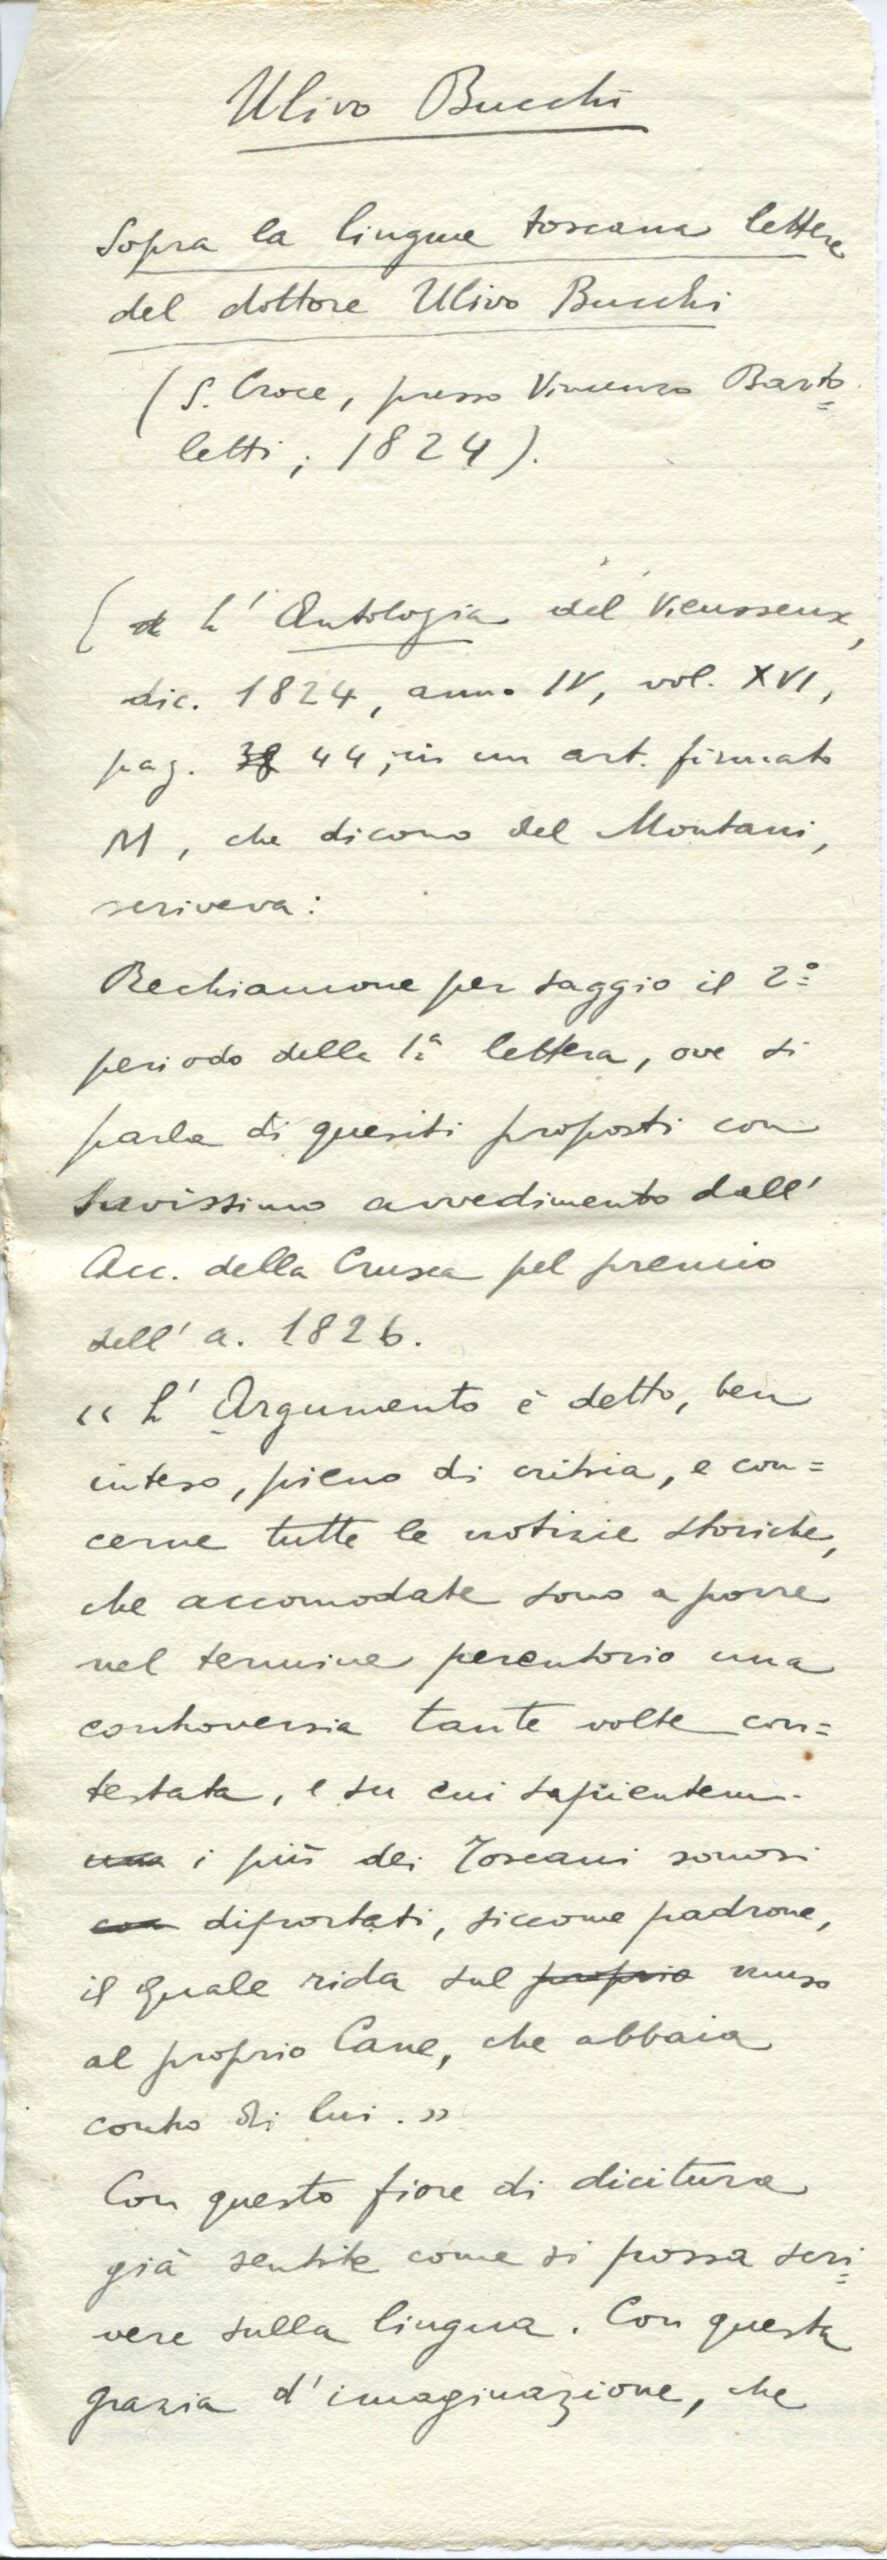 Ulivo Bucchi
Sopra la lingua toscana lettere
del dottore Ulivo Bucchi
(S. Croce, presso Vincenzo Barto=
letti, 1824).
( L' Antologia del Vieusseux,
dic. 1824, anno IV, vol. XVI,
pag. 38 44, in un art. firmato
M, che dicono del Montani,
scriveva:
Rechiamone per saggio il 2º
periodo della 1ª lettera, ove si
parla di quesiti proposti con
savissimo avvedimento dall'
Acc. della Crusca pel premio
dell' a. 1826.
« L' Argumento è detto, ben
inteso, pieno di critica, e con=
cerne tutte le notizie storiche,
che accomodate sono a porre
nel termine perentorio una
controversia tante volte con=
testata, e su cui sapientem.
i più dei Toscani sonosi
con diportati, siccome padrone,
il quale rida sul proprio muso
al proprio Cane, che abbaia
contro di lui. »
Con questo fiore di dicitura
già sentite come si possa scri=
vere sulla lingua. Con questa
grazia d'imaginazione, che